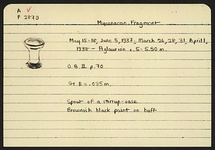 A √
P 2873
Mycenaean Fragment
May 15-18, June 3, 1937; March 26, 28, 31, April 1,
1938 - Aglaurion c. 5-5.50 m.
O.B. II p. 70
H. 0.025m.
Spout of a stirrup-vase
Brownish black paint on buff